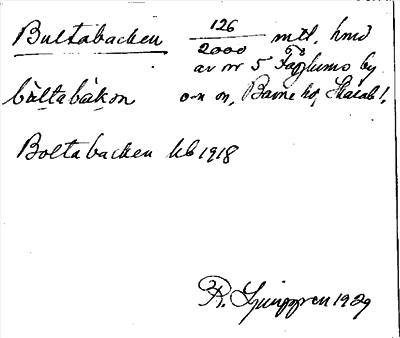 Bultabacken 126/2000 mtl. hmd
av nr 5 Fåglums by
bùltabàkan o-n on, Barne hd, Skarab l.
Boltabacken kb 1918
R. Ljunggren 1929